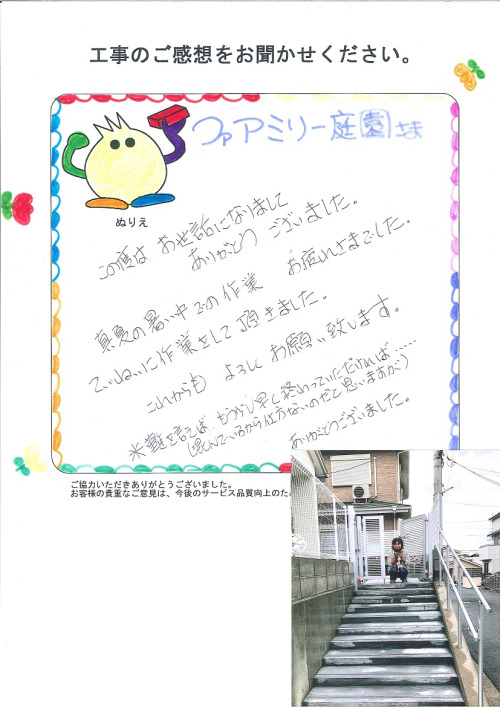 工事のご感想をお聞かせください。
ファアミリー庭園さま
ぬりえ
この度は お世話になりまして
ありがとう ございました。
真夏の暑い中での作業 お疲れさまでした。
ていねいに作業をして頂きました。
これからも よろしく お願い致します。
※難を言えば、もう少し早く終わっていただければ……
(混んでいるから仕方ないのだと思いますが)
ありがとうございました。
ご協力いただきありがとうございました。
お客様の貴重なご意見は、今後のサービス品質向上のた